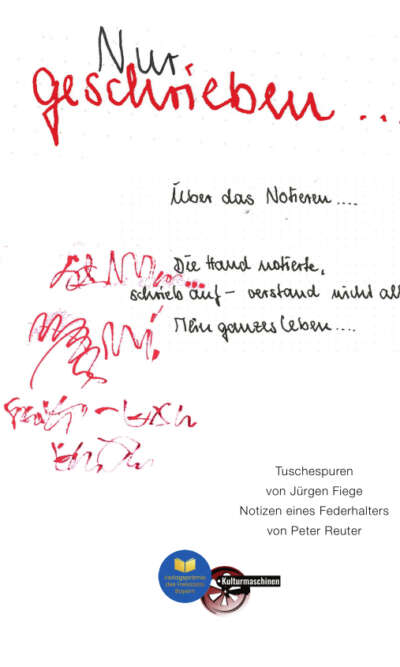 Nur
geschrieben ...
Über das Notieren ....
Die Hand notierte,
schrieb auf – verstand nicht all
Mein ganzes Leben ....
Tuschespuren
von Jürgen Fiege
Notizen eines Federhalters
von Peter Reuter
Verlagsprämie
des Freistaats
Bayern
Kulturmaschinen